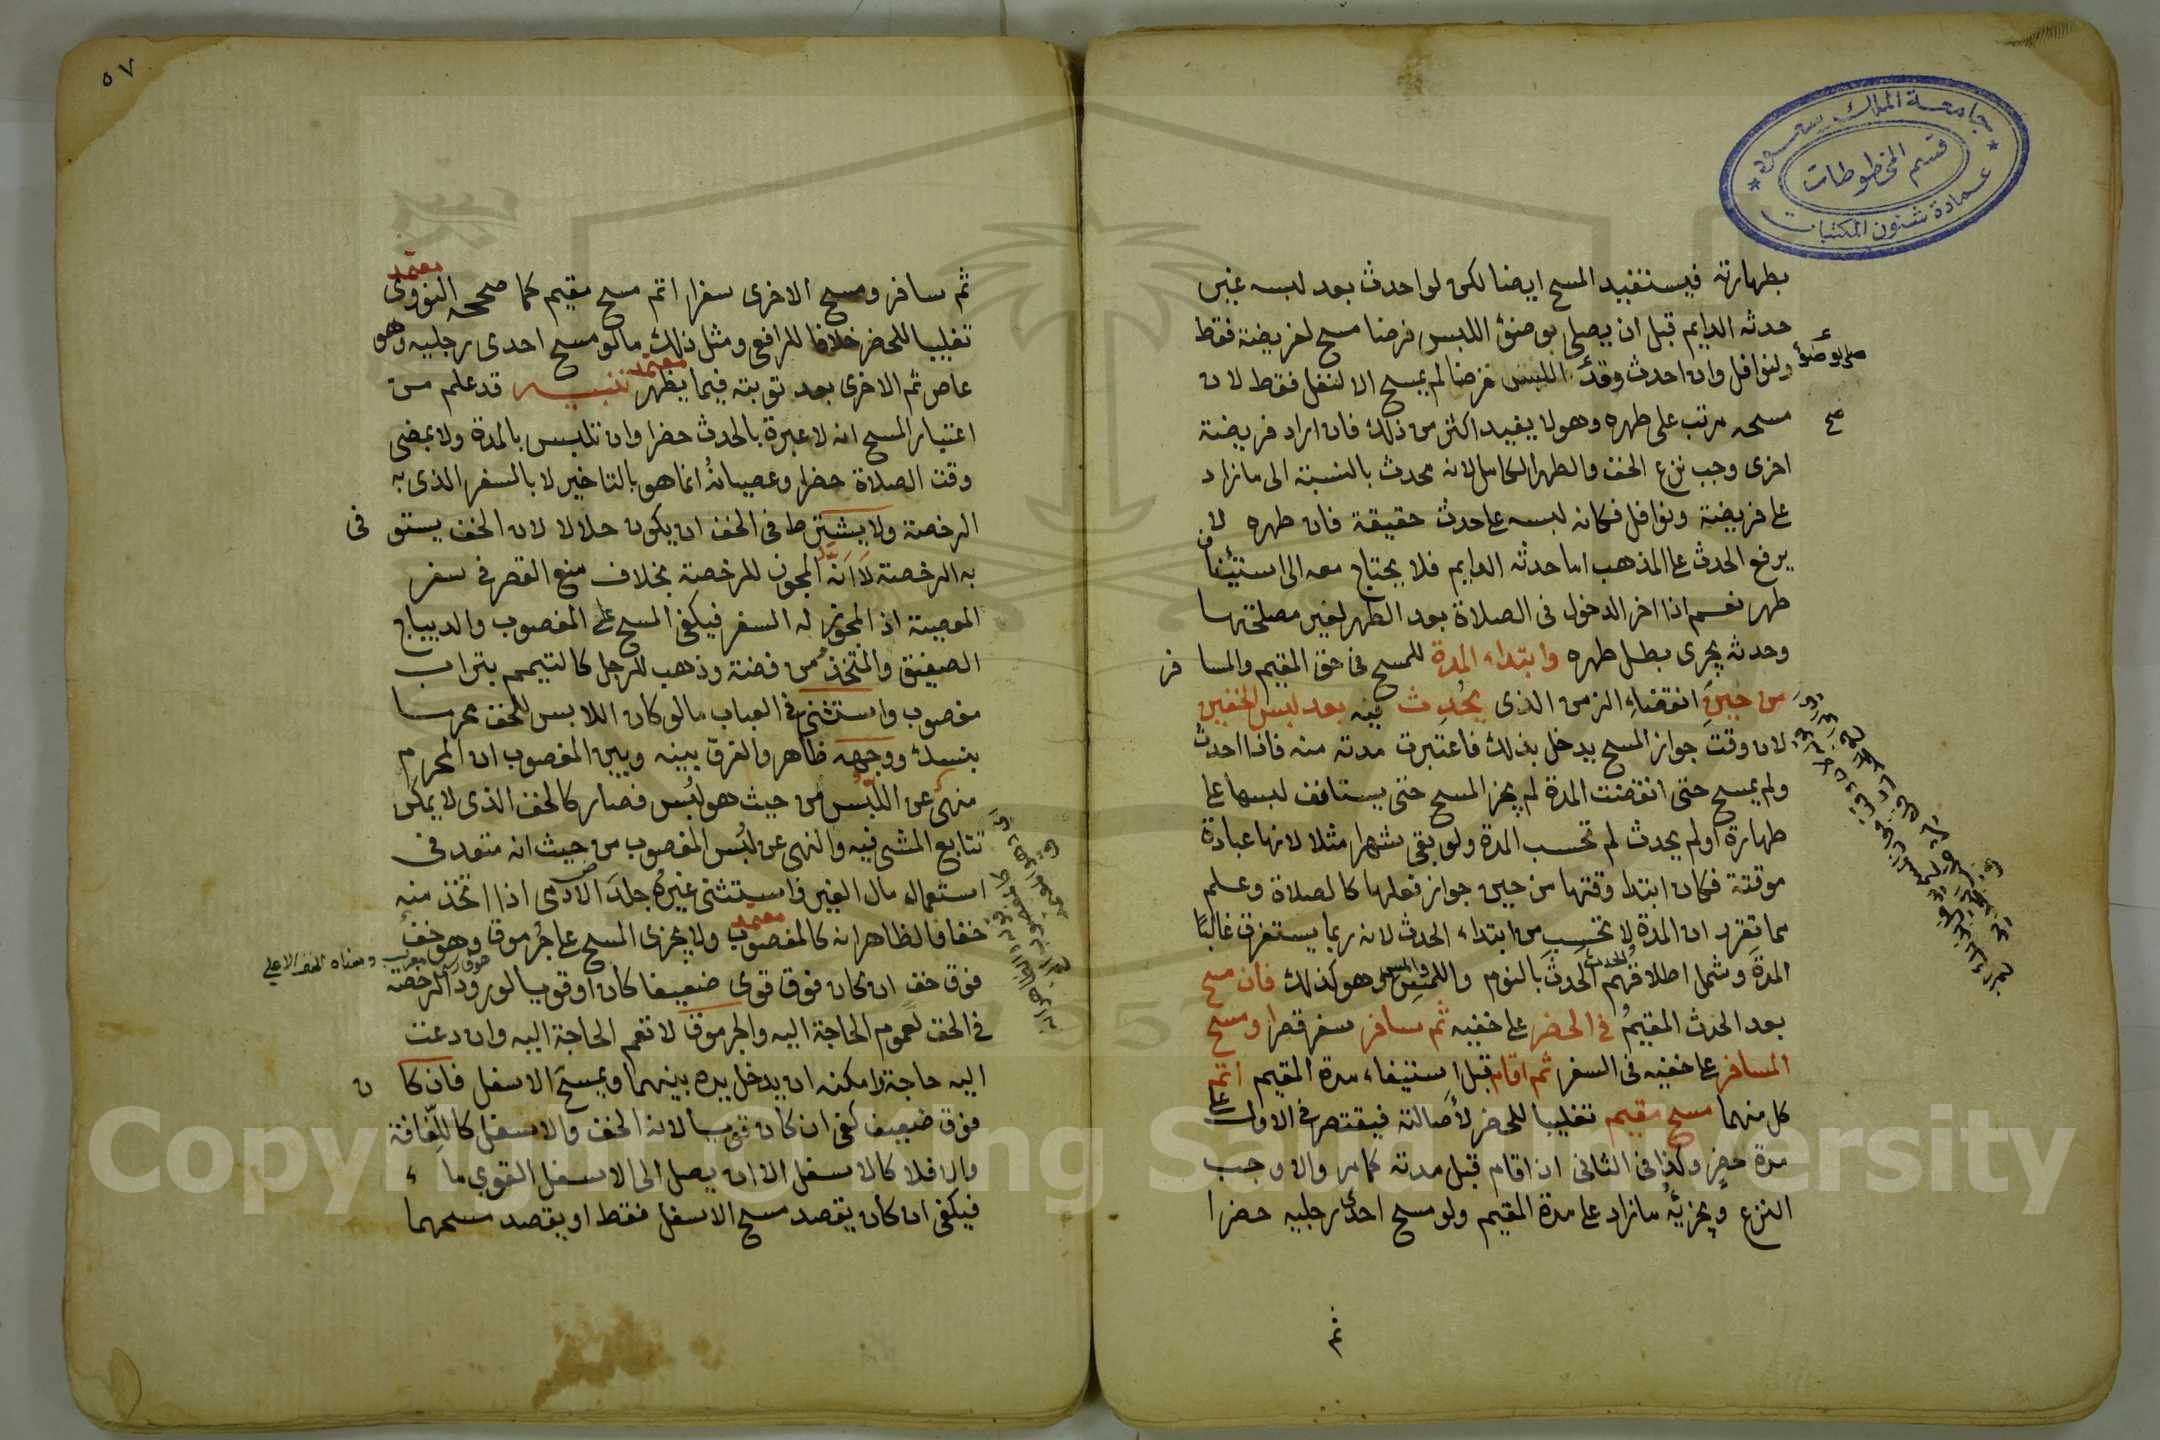 جامعة الملك سعود
قسم المخطوطات
عمادة شئون المكتبات
بطهارته فيستفيد المسح ايضا لكن لو احدث بعد لبسه غير
حدثه الدايم قبل ان يصلي بوضوء اللبس فرضا مسح لفريضة فقط
ولنوافل وان احدث وقد اللبس فرضا لم يمسح الا لنفل فقط لان
صلى بوضوء
صح
مسحه مرتب على طهره وهو لا يفيد اكثر من ذلك فان اراد فريضة
اخرى وجب نزع الخف والطهر الكامل لانه محدث بالنسبة الى ما زاد
على فريضة ونوافل فكانه لبسه على حدث حقيقة فان طهره لا
يرفع الحدث على المذهب اما حدثه الدايم فلا يحتاج معه الى استئناف
طهر نعم اذا اخر الدخول في الصلاة بعد الطهر لغير مصلحتها
وحدثه يجري بطل طهره وابتداء المدة للمسح في حق المقيم والمسافر
من حين انقضاء الزمن الذي يحدث فيه بعد لبس الخفين
لان وقت جواز المسح يدخل بذلك فاعتبرت مدته منه فاذا احدث
ولم يمسح حتى انقضت المدة لم يجز المسح حتى يستانف لبسها على
طهارة او لم يحدث لم تحسب المدة ولو بقي شهرا مثلا لانها عبادة
موقتة فكان ابتدا وقتها من حين جواز فعلها كالصلاة وعلم
مما تقرر ان المدة لا تحسب من ابتداء الحدث لانه ربما يستغرق غالبا
المدة وشمل اطلاقهم الحدث الحدث بالنوم واللمس والمس وهو كذلك فان مسح
بعد الحدث المقيم في الحضر على خفيه ثم سافر سفر قصر او مسح
المسافر على خفيه في السفر ثم اقام قبل استيفاء مدة المقيم اتم
كل منهما مسح مقيم تغليبا للحضر لاصالته فيقتصر في الاول على
مدة حضر وكذا في الثاني ان اقام قبل مدته كما مر والا وجب
النزع ويجزيه ما زاد على مدة المقيم ولو مسح احدى رجليه حضرا
ثم
٥٧
ثم سافر ومسح الاخرى سفرا اتم مسح مقيم كما صححه النووي
معتمد
تغليبا للحضر خلافا للرافعي ومثل ذلك ما لو مسح احدى رجليه وهو
عاص ثم الاخرى بعد توبته فيما يظهر معتمد تنبيه قد علم من
اعتبار المسح انه لا عبرة بالحدث حضرا وان تلبس بالمدة ولا بمضي
وقت الصلاة حضرا وعصيانه انما هو بالتاخير لا بالسفر الذي به
الرخصة ولا يشترط في الخف ان يكون حلالا لان الخف يستوفى
به الرخصة لا انه المجوز للرخصة بخلاف منع القصر في سفر
المعصية اذ المجوز له السفر فيكفي المسح على المغصوب والديباج
الصفيق والمتخذ من فضة وذهب للرجل كالتيمم بتراب
مغصوب واستثنى في العباب ما لو كان اللابس للخف محرما
بنسك ووجهه ظاهر والفرق بينه وبين المغصوب ان المحرم
منهي عن اللبس من حيث هو لبس فصار كالخف الذي لا يمكن
تتابع المشي فيه والنهي عن لبس المغصوب من حيث انه متعد في
استعمال مال الغير واستثنى غيره جلد الادمي اذا اتخذ منه
خفا فالظاهر انه كالمغصوب معتمد ولا يجزى المسح على جرموق وهو خف
فوق خف ان كان فوق قوي ضعيفا كان او قويا لورود الرخصة
معرب ومعناه الخف الاعلى
في الخف لعموم الحاجة اليه والجرموق لا تعم الحاجة اليه وان دعت
اليه حاجة لامكنه ان يدخل يده بينهما ويمسح الاسفل فان كان
فوق ضعيف كفى ان كان قويا لانه الخف والاسفل كاللفافة
والا فلا كالاسفل الا ان يصل الى الاسفل القوي ماء
فيكفي ان كان يقصد مسح الاسفل فقط او يقصد مسحهما
Copyright © King Saud University